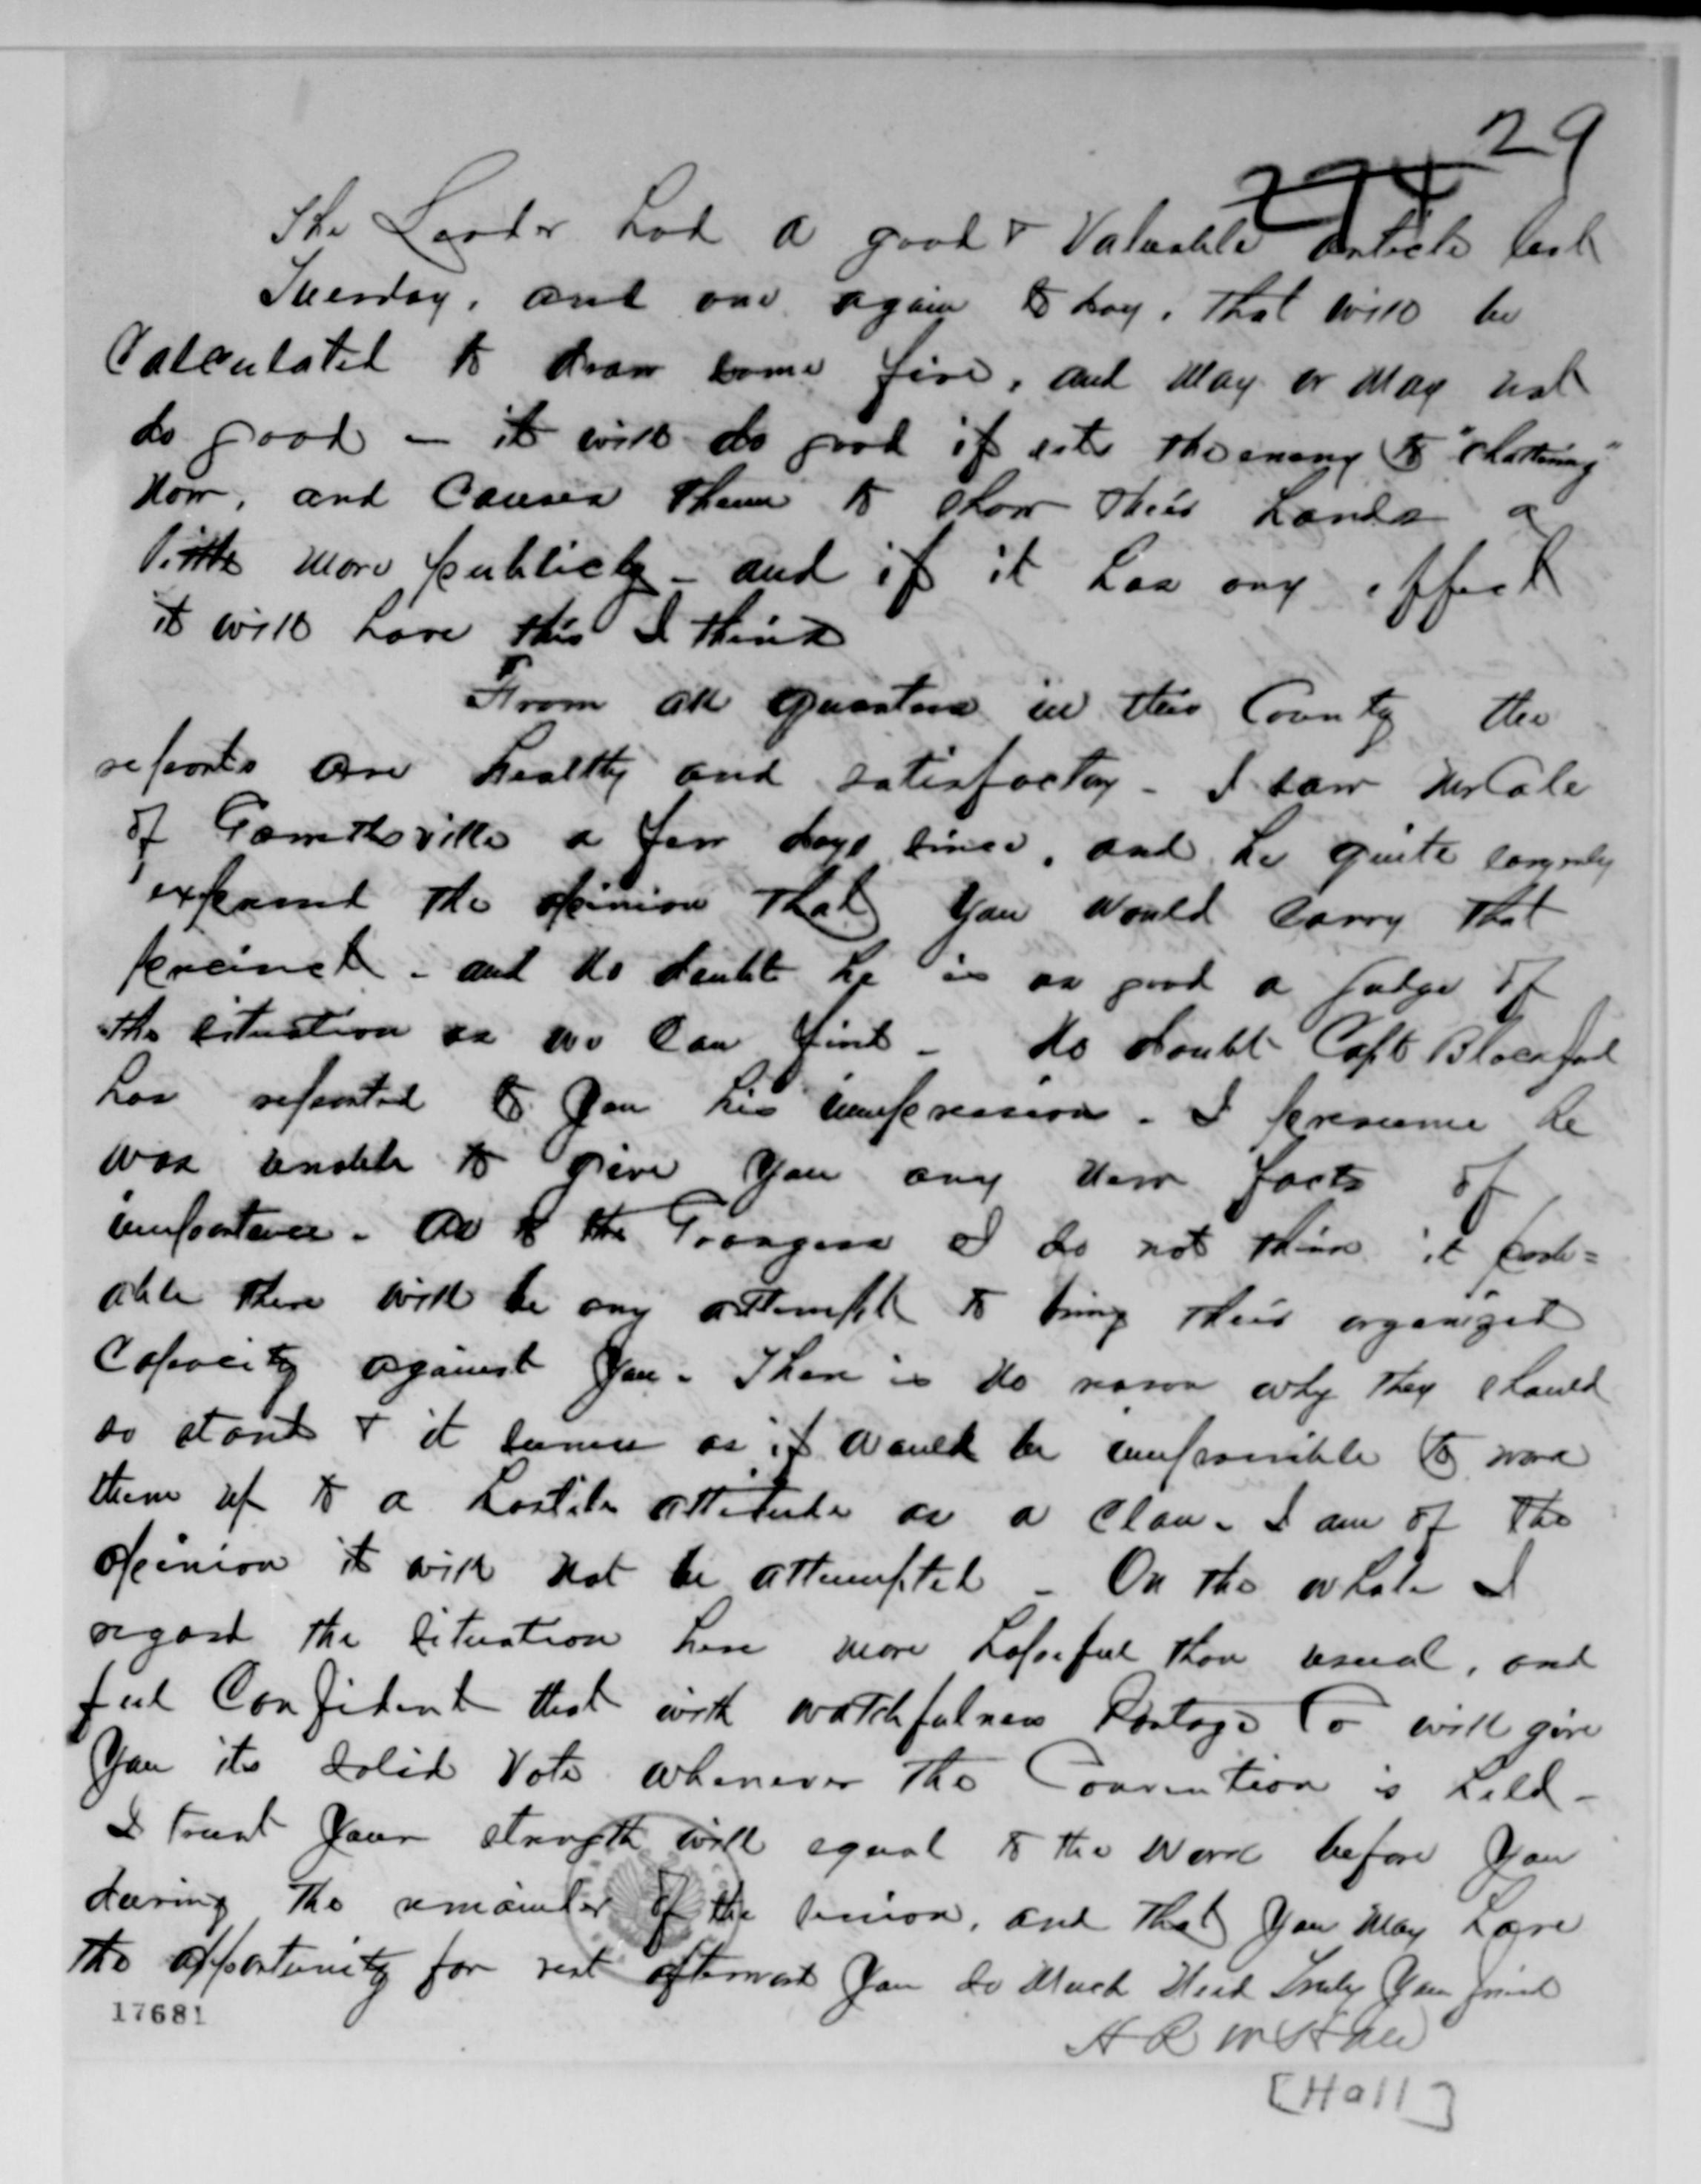 29
294
The Leader had a good & Valuable article last
Tuesday, and one again to day. that will be
Calculated to draw some fire, and may or may not
do good — it will do good if sets the enemy to "chattering"
now, and Causes them to show their hands a
little more publicly — and if it has any effect
it will have this I think
From all quarters in this County the
reports are healthy and satisfactory — I saw Mr Cole
of Garrettsville a few days since, and he quite
expressed the opinion that you would carry that
precinct — and no doubt he is as good a judge of
the situation as we can find — No doubt Capt
has reported to you his impression. I presume he
was unable to give you any new facts of
importance. As to the Grangers I do not think it prob=
able there will be any attempt to bring their organized
Capacity against you. There is no reason why they should
so stand & it seems as if would be impossible to work
them up to a hostile attitude as a clan. I am of the
opinion it will not be attempted — On the whole I
regard the situation here more hopeful than usual, and
feel Confident that with watchfulness Portage Co will give
you its solid Vote whenever the Convention is held —
I trust your strength will equal to the work before you
during the remainder of the session, and that you may have
the opportunity for rest afterward you so much need Truly your friend
17681
H R
[Hall]